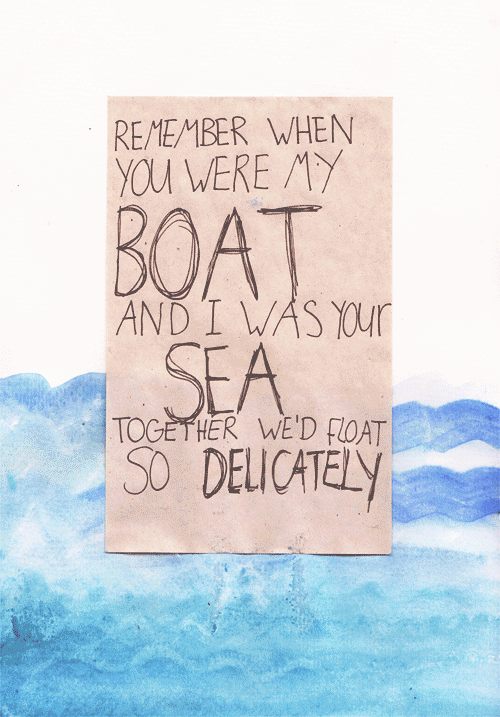 REMEMBER WHEN
YOU WERE MY
BOAT
AND I WAS YOUr
SEA
TOGETHER WE'D FLOAT
SO DELICATELY